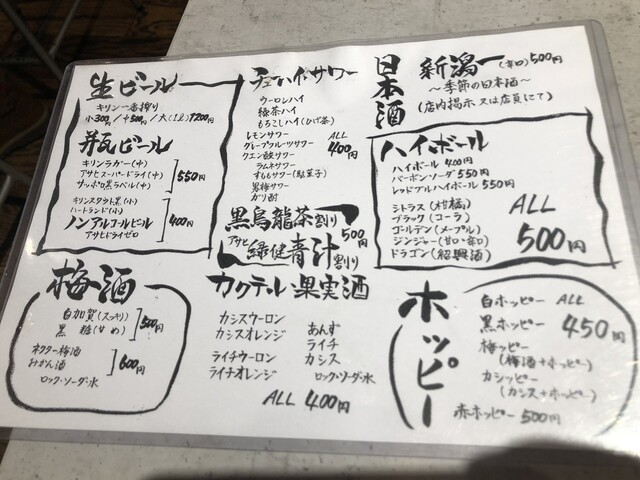 生ビール
キリン一番搾り
小300円/中500円/大(1L)1200円
弁瓦ビール
キリンラガー(中)
アサヒスーパードライ(中)
サッポロ黒ラベル(中)
550円
キリンスタウト黒(小)
ハートランド(小)
ノンアルコールビール
アサヒドライゼロ
400円
チューハイ・サワー
ウーロンハイ
緑茶ハイ
もろこしハイ(ひげ茶)
レモンサワー
グレープフルーツサワー
クエン酸サワー
ラムネサワー
すももサワー(駄菓子)
男梅サワー
ガリ酎
ALL
400円
黒烏龍茶割り
アサヒ緑健青汁割り
500円
日本酒
新潟一(辛口)500円
〜季節の日本酒〜
(店内掲示又は店員にて)
ハイボール
ハイボール 400円
バーボンソーダ 550円
レッドブルハイボール 550円
シトラス(柑橘)
ブラック(コーラ)
ゴールデン(メープル)
ジンジャー(甘口・辛口)
ドラゴン(紹興酒)
ALL
500円
梅酒
白加賀(スッキリ)
黒糖(甘め)
500円
ネクター梅酒
みかん酒
600円
ロック・ソーダ・水
カクテル・果実酒
カシスウーロン
カシスオレンジ
ライチウーロン
ライチオレンジ
あんず
ライチ
カシス
ロック・ソーダ・水
ALL 400円
ホッピー
白ホッピー
黒ホッピー
梅ッピー
(梅酒+ホッピー)
カシッピー
(カシス+ホッピー)
ALL
450円
赤ホッピー 500円